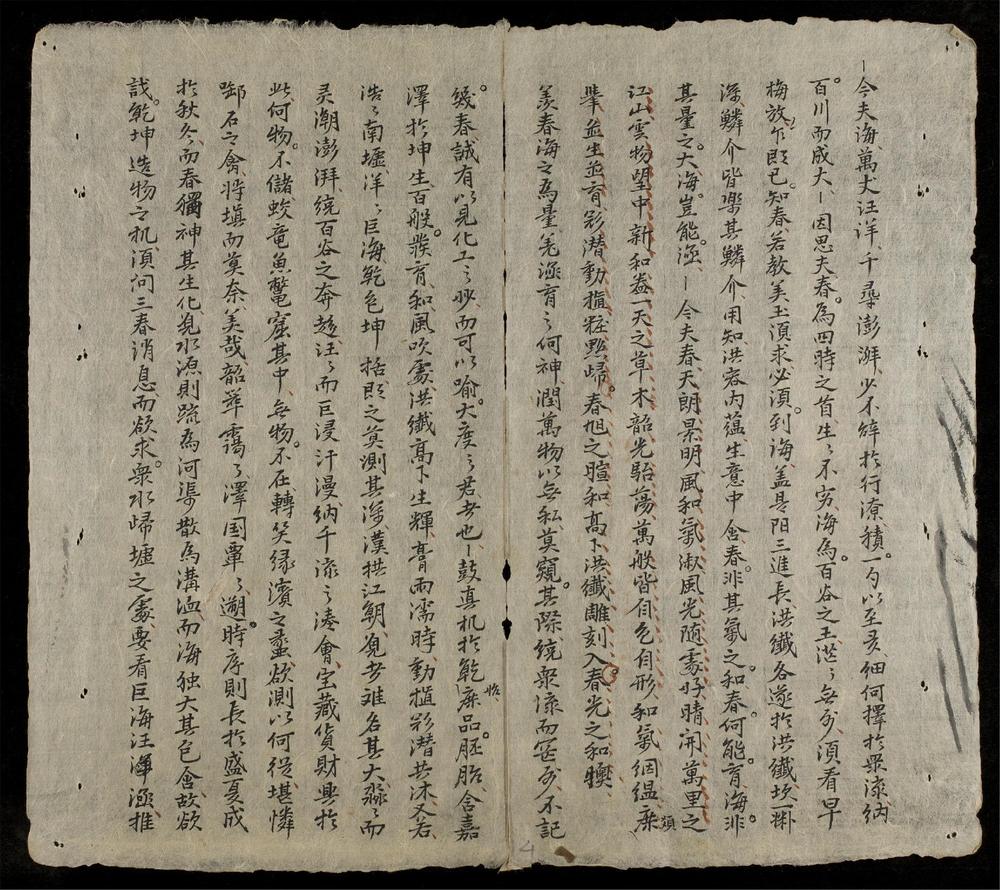 一今夫海萬丈汪洋千尋澎湃少不辞於行潦積一勺以至亥細何擇於衆流納
百川而成大一因思夫春為四時之首生〻不穷海為百谷之王茫〻無外須看早
梅放乍既已知春若教美玉須求必須到海盖是阳三進長洪纖各遂於洪纖坎一
深鱗介皆樂其鱗介用知洪容内蕴生意中含春非其氣之和春何能育海非
其量之大海豈能涵一今夫春天朗景明風和氣淑風光随處好晴開萬里之
江山雲物望中新和盎一天之草木韶光駘荡萬般皆自色自形和氣絪緼庶類
羣並生並育彩潜動植粧點歸春旭之暄和高下洪纖雕刻入春光之和
羡春海之為量羌涵育之何神潤萬物以無私莫窺其際統衆流而不記
幾春誠有以見化工之妙而可以喻大度之君者也一鼓真机於乾庶品胚胎含嘉
澤於坤生百般發育和風吹處洪纖高下生輝膏雨濡時動植彩潜共沐又若
浩〻南墟洋〻巨海乾包坤括既之莫測其深漢拱江朝覓者难名其大淼〻而
灵潮澎湃统百谷之奔趍汪〻而巨浸汗漫纳千流之湊會宝藏貨財興於
此何物不儲蛟竜魚鱉窟其中無物不在轉笑缘濱之蠡欲測以何從堪憐
啣石之禽將填而莫奈美哉韶華靄〻澤国覃〻遡時序則長於盛夏成
於秋冬而春獨神其生化覓水源則疏為河渠散為溝洫而海独大其包含故欲
識乾坤造物之机須問三春消息而欲求衆水歸墟之處要看巨海汪渾涵推